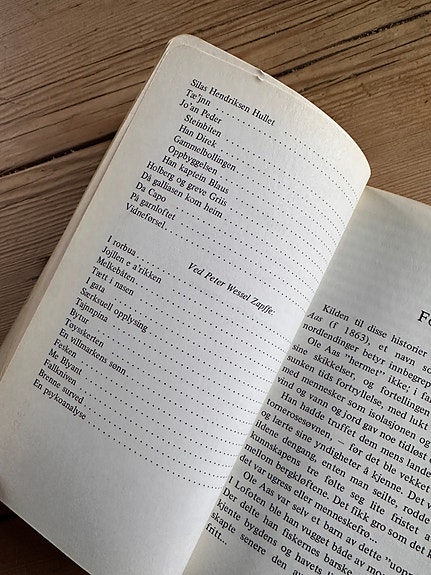 Silas Hendriksen Hullet
Tæ'jnn
Jo'an Peder
Steinbiten
Han Direk
Gammelbollingen
Oppbyggelsen
Han kaptein Blaus
Holberg og greve Griis
Då galliasen kom heim
Da Capo
På garnloftet
Vidneførsel
Ved Peter Wessel Zapffe:
I rorbua
Jojllen e a'rikken
Melkebåten
Tætt i nasen
I gata
Særksuell opplysing
Tajnnpina
Bytur
Tøysskerten
En villmarkens sønn
Fesken
Mr. Blyant
Fallkniven
Brenne surved
En psykoanalyse
Fo
Kilden til disse historier
Aas (f 1863), et navn som
nordlendinger bety" innbegrep
Ole Aas "hermet" ikke; i fa
sine skikkelser, og fortellingen
unken tids fortryllelse, med lukt
med mennesker som isolasjonen og
vind og vann og jord gav noe tidløst
Han hadde truffet dem mens lande
tornerosesøvnen, – før det ble vekket
og lærte sine vyndigheter å kjenne. Det
ildene dengang, enten man seilte, rodde
kunnskapens tre følte seg lite fristet a
mellom bergkløftene. Det fikk gro som det k
det var ugress eller menneskefrø...
Ole Aas var selv et barn av dette "uopp
I Lofoten ble han vugget både av mo
Der delte han fiskernes barske
kjente bygdens og havets
skapte senere den av
fritt...